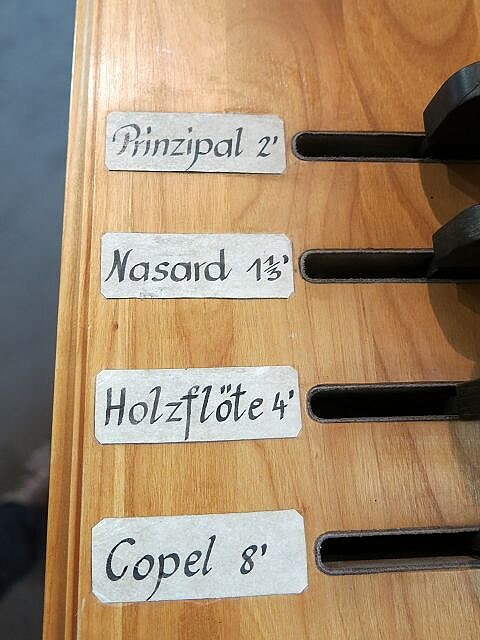 Prinzipal 2'
Nasard 1⅓'
Holzflöte 4'
Copel 8'